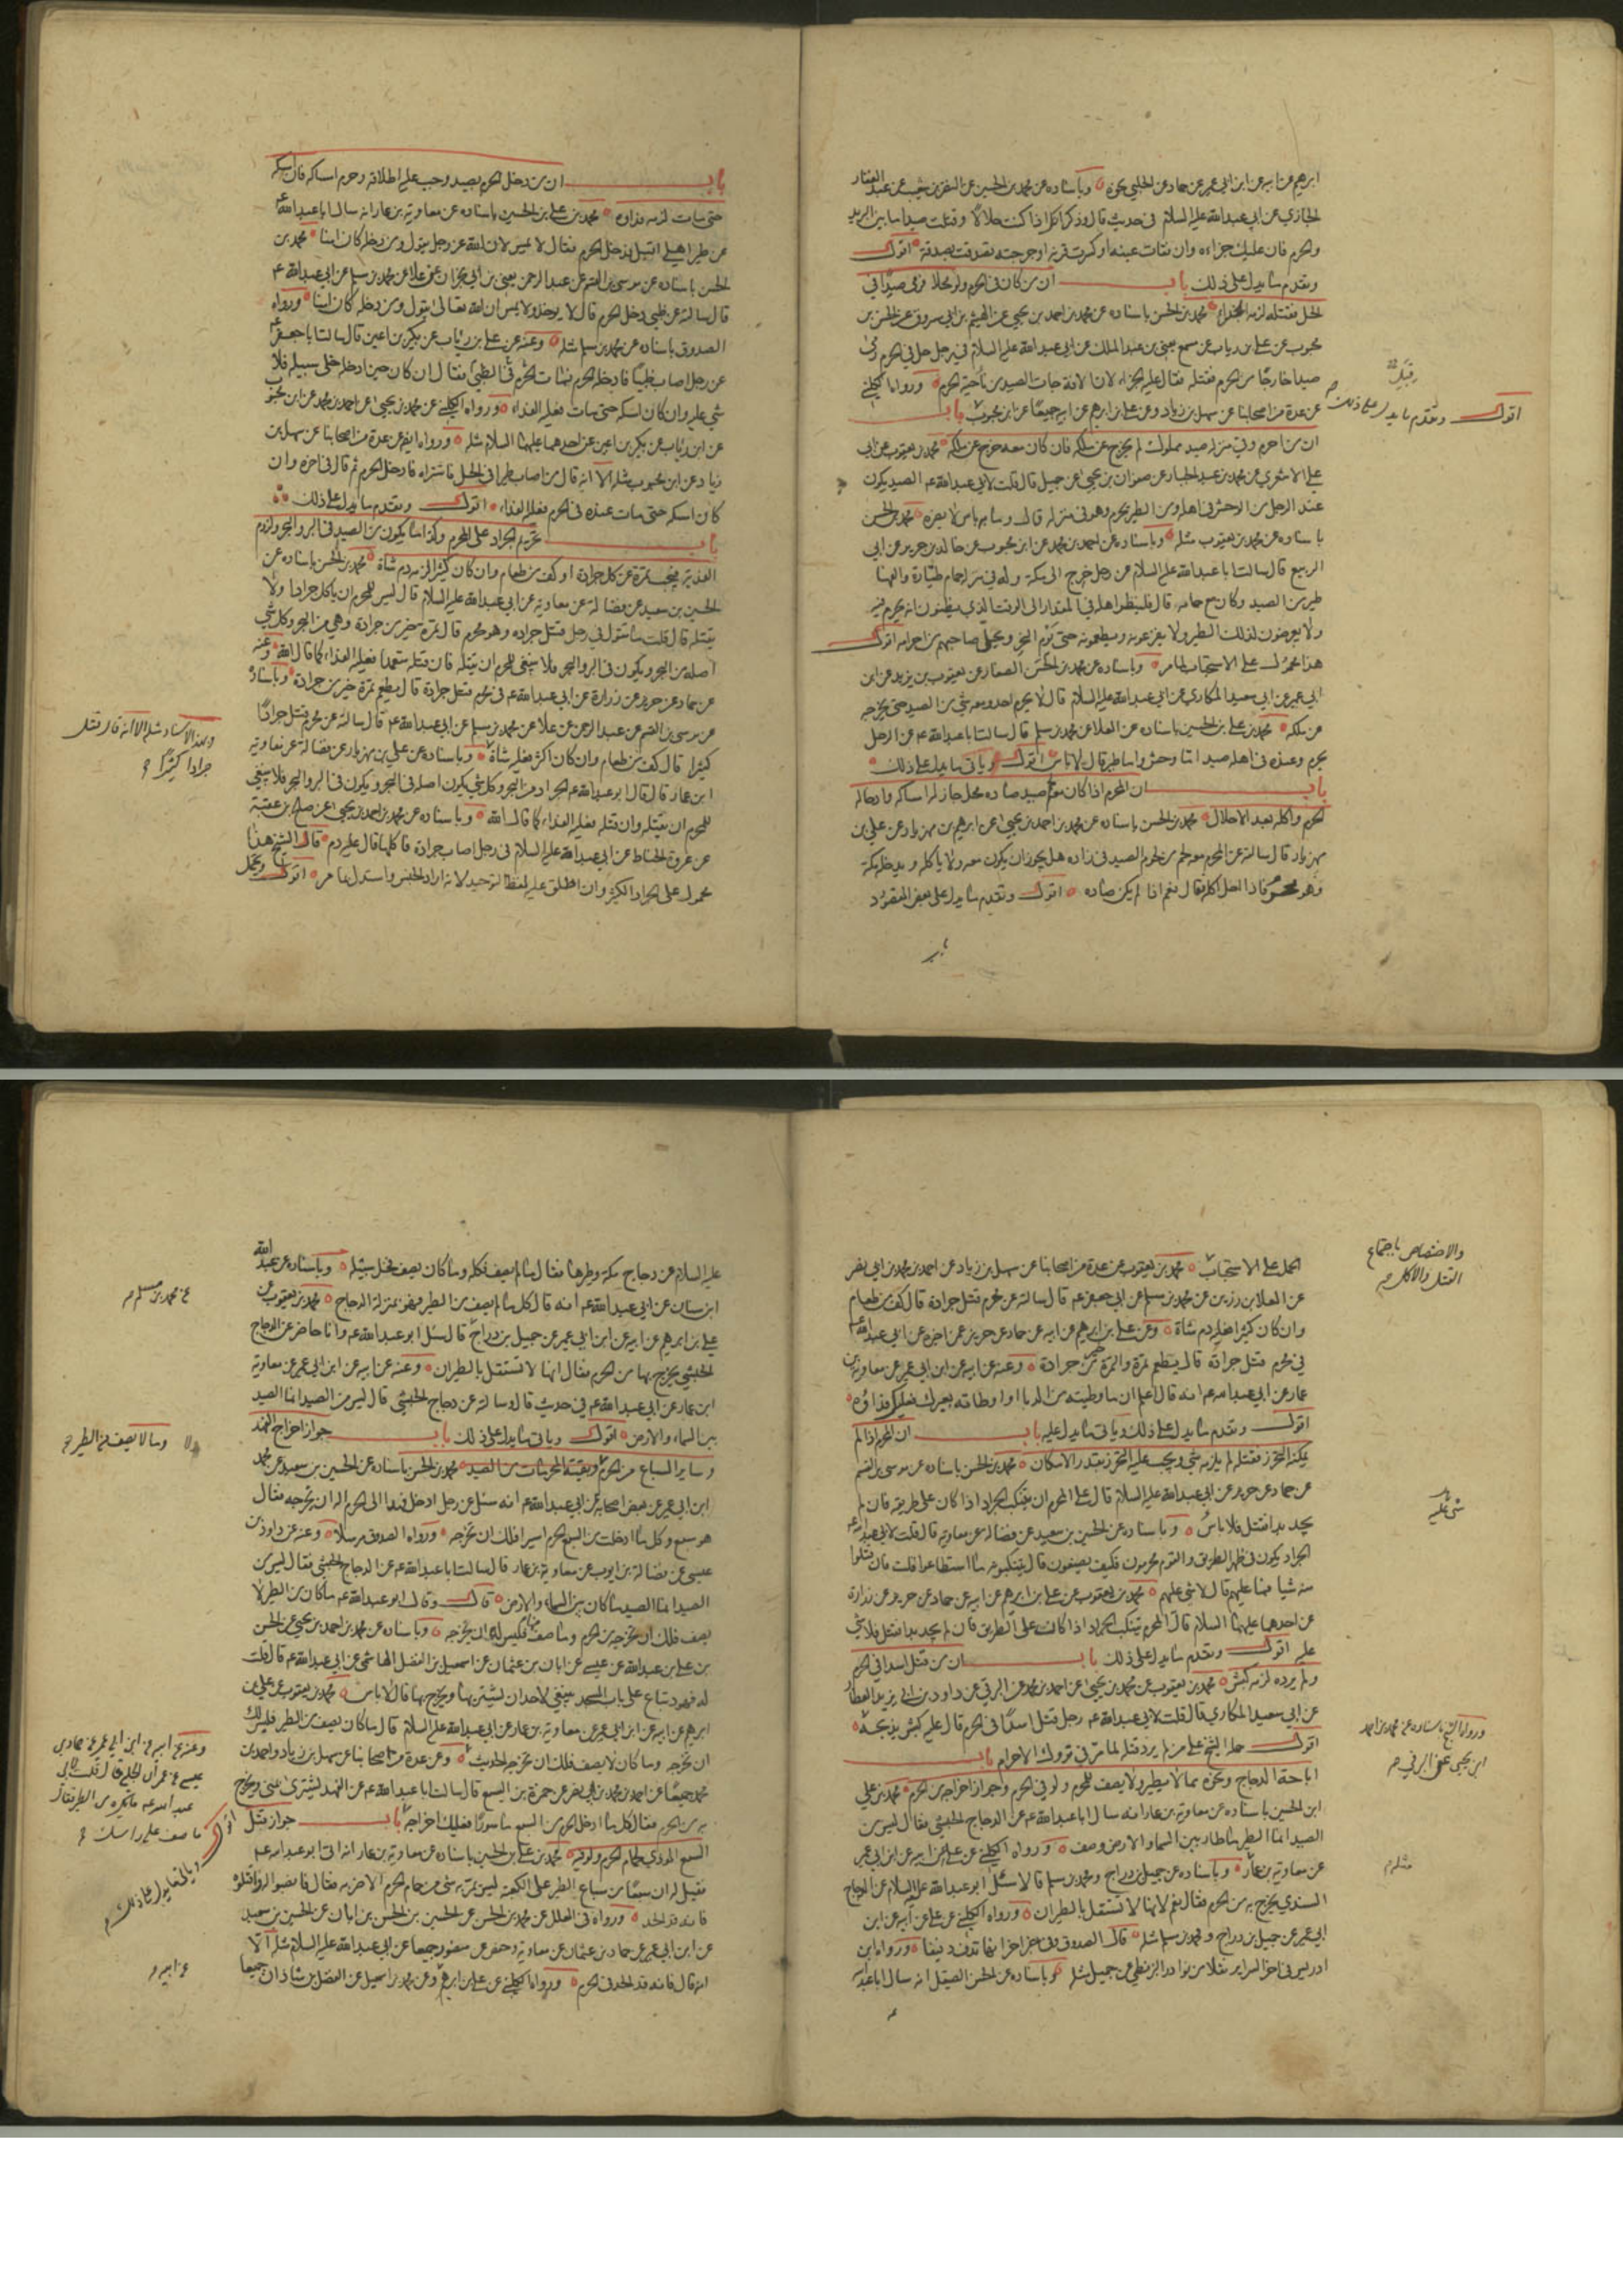 ابرهيم عن ابيه عن ابن ابي عمير عن حماد عن الحلبي نحوه وباسناده عن محمد بن الحسين عن النضر بن شعيب عن عبد الغفار
الجازي عن ابي عبد الله عليه السلام في حديث قال وذكر انك اذا كنت حلالا وقتلت صيدا ما بين البريد
والحرم فان عليك جزاءه وان فقات عينه او كسرت قرنه او جرحته تصدقت بصدقة اقول
وتقدم ما يدل على ذلك باب ان من كان في الحرم ولو محلا فرمى صيدا في
الحل فقتله لزمه الجزاء محمد بن الحسن باسناده عن محمد بن احمد بن يحيى عن الهيثم بن ابي مسروق عن الحسن بن
محبوب عن علي بن رياب عن مسمع يعني بن عبد الملك عن ابي عبد الله عليه السلام في رجل حل في الحرم رمى
صيدا خارجا من الحرم فقتله فقال عليه الجزاء لان الافة جاءت الصيد من ناحية الحرم ورواه الكليني
عن عدة من اصحابنا عن سهل بن زياد وعن علي بن ابرهيم عن ابيه جميعا عن ابن محبوب باب
اقول وتقدم ما يدل على ذلك
ان من احرم وفي منزله صيد مملوك لم يخرج عن ملكه فان كان معه خرج عن ملكه محمد بن يعقوب عن ابي
علي الاشعري عن محمد بن عبد الجبار عن صفوان بن يحيى عن جميل قال قلت لابي عبد الله عم الصيد يكون
عند الرجل من الوحش في اهله ومن الطير يحرم وهو في منزله قال وما به باس لا يضره محمد بن الحسن
باسناده عن محمد بن يعقوب مثله وباسناده عن احمد بن محمد عن ابن محبوب عن خالد بن جرير عن ابي
الربيع قال سالت ابا عبد الله عليه السلام عن رجل خرج الى مكة وله في منزله حمام طيارة والفها
طير من الصيد وكان مع حمامه قال فلينظر اهله في المقدار الى الوقت الذي يظنون انه يحرم فيه
ولا يعرضون لذلك الطير ولا يفزعونه ويطعمونه حتى يوم النحر ويحل صاحبهم من احرامه اقول
هذا محمول على الاستحباب لما مر وباسناده عن محمد بن الحسن الصفار عن يعقوب بن يزيد عن ابن
ابي عمير عن ابي سعيد المكاري عن ابي عبد الله عليه السلام قال لا يحرم احد ومعه شي من الصيد حتى يخرجه
عن ملكه محمد بن علي بن الحسين باسناده عن العلا عن محمد بن مسلم قال سالت ابا عبد الله عم عن الرجل
يحرم وعنده في اهله صيد اما وحش واما طير قال لا باس اقول وياتي ما يدل على ذلك
باب ان المحرم اذا كان معه لحم صيد صاده محل جاز له امساكه وادخاله
الحرم واكله بعد الاحلال محمد بن الحسن باسناده عن محمد بن احمد بن يحيى عن ابرهيم بن مهزيار عن علي بن
مهزيار قال سالته عن المحرم معه لحم من لحوم الصيد في زاده هل يجوز ان يكون معه ولا ياكله ويدخله مكة
وهو محرم فاذا احل اكله فقال نعم اذا لم يكن صاده اقول وتقدم ما يدل على بعض المقصود
باب ان من دخل الحرم بصيد وجب عليه اطلاقه وحرم امساكه فان امسكه
حتى مات لزمه فداؤه محمد بن علي بن الحسين باسناده عن معاوية بن عمار انه سال ابا عبد الله عم
عن طير اهلي اقبل فدخل الحرم فقال لا يمس لان الله عز وجل يقول ومن دخله كان امنا محمد بن
الحسن باسناده عن موسى بن القسم عن عبد الرحمن يعني بن ابي نجران عن علا عن محمد بن مسلم عن ابي عبد الله عم
قال سالته عن ظبي دخل الحرم قال لا يوخذ ولا يمس ان الله تعالى يقول ومن دخله كان امنا ورواه
الصدوق باسناده عن محمد بن مسلم مثله وعنه عن علي بن رياب عن بكير بن اعين قال سالت ابا جعفر عم
عن رجل اصاب ظبيا فادخله الحرم فمات الظبي في الحرم فقال ان كان حين ادخله خلى سبيله فلا
شي عليه وان كان امسكه حتى مات فعليه الفداء ورواه الكليني عن محمد بن يحيى عن احمد بن محمد عن ابن محبوب
عن ابن رياب عن بكير بن اعين عن احدهما عليهما السلام مثله ورواه ايضا عن عدة من اصحابنا عن سهل بن
زياد عن ابن محبوب مثله الا انه قال من اصاب طيرا في الحل فاشتراه فادخله الحرم ثم قال في اخره وان
كان امسكه حتى مات عنده في الحرم فعليه الفداء اقول وتقدم ما يدل على ذلك
باب تحريم الجراد على المحرم وكذا ما يكون من الصيد في البر والبحر ولزوم
الفدية فيجب تمرة عن كل جرادة او كف من طعام وان كان كثيرا لزمه دم شاة محمد بن الحسن باسناده عن
الحسين بن سعيد عن فضالة عن معاوية عن ابي عبد الله عليه السلام قال ليس للمحرم ان ياكل جرادا ولا
يقتله قال قلت ما تقول في رجل قتل جرادة وهو محرم قال تمرة خير من جرادة وهي من البحر وكل شي
اصله من البحر ويكون في البر والبحر فلا ينبغي للمحرم ان يقتله فان قتله متعمدا فعليه الفداء كما قال الله وعنه
عن حماد عن حريز عن زرارة عن ابي عبد الله عم في محرم قتل جرادة قال يطعم تمرة خير من جرادة وباسناده
عن موسى بن القسم عن عبد الرحمن عن علا عن محمد بن مسلم عن ابي عبد الله عم قال سالته عن محرم قتل جرادا
كثيرا قال كف من طعام وان كان اكثر فعليه شاة وباسناده عن علي بن مهزيار عن فضالة عن معاوية
وبهذا الاسناد مثله الا انه قال قتل
جرادا كثيرا
ابن عمار قال قال ابو عبد الله عم الجراد من البحر وكل شي يكون اصله في البحر ويكون في البر والبحر فلا ينبغي
للمحرم ان يقتله وان قتله فعليه الفداء كما قال الله وباسناده عن محمد بن احمد بن يحيى عن صلح بن عقبة
عن عروة الحناط عن ابي عبد الله عليه السلام في رجل اصاب جرادة فاكلها قال عليه دم قال الشيخ هذا
محمول على الجراد الكثير وان اطلق عليه لفظ التوحيد لانه اراد الجنس واستدل بما مر اقول ويحتمل
الحمل على الاستحباب محمد بن يعقوب عن عدة من اصحابنا عن سهل بن زياد عن احمد بن محمد بن ابي نصر
والاختصاص باجتماع
القتل والاكل
عن العلا بن رزين عن محمد بن مسلم عن ابي جعفر عم قال سالته عن محرم قتل جرادة قال كف من طعام
وان كان كثيرا فعليه دم شاة وعن علي بن ابرهيم عن ابيه عن حماد عن حريز عمن اخبره عن ابي عبد الله عم
في محرم قتل جرادة قال يطعم تمرة والتمرة خير من جرادة وعنه عن ابيه عن ابن ابي عمير عن معاوية بن
عمار عن ابي عبد الله عم انه قال اعلم ان ما وطيته من الدبا او اوطاته بعيرك فعليك فداؤه
اقول وتقدم ما يدل على ذلك وياتي ما يدل عليه باب ان المحرم اذا لم
يمكنه التحرز فقتله لم يلزمه شي ويجب عليه التحرز بقدر الامكان محمد بن الحسن باسناده عن موسى بن القسم
عن حماد عن حريز عن ابي عبد الله عليه السلام قال على المحرم ان يتنكب الجراد اذا كان على طريقه فان لم
يجد بدا فقتل فلا باس وباسناده عن الحسين بن سعيد عن فضالة عن معاوية قال قلت لابي عبد الله عم
الجراد يكون في ظهر الطريق والقوم محرمون فكيف يصنعون قال يتنكبونه ما استطاعوا قلت فان قتلوا
منه شيا ما عليهم قال لا شي عليهم محمد بن يعقوب عن علي بن ابرهيم عن ابيه عن حماد عن حريز عن زرارة
عن احدهما عليهما السلام قال المحرم يتنكب الجراد اذا كان على الطريق فان لم يجد بدا فقتل فلا شي
عليه اقول وتقدم ما يدل على ذلك باب ان من قتل اسدا في الحرم
ولم يرده لزمه كبش محمد بن يعقوب عن محمد بن يحيى عن احمد بن محمد عن البرقي عن داود بن ابي يزيد العطار
عن ابي سعيد المكاري قال قلت لابي عبد الله عم رجل قتل اسدا في الحرم قال عليه كبش يذبحه
ورواه الشيخ باسناده عن محمد بن احمد
ابن يحيى عن البرقي
اقول حمله الشيخ على من لم يرد قتله لما مر في تروك الاحرام باب
اباحة الدجاج ونحوه مما لا يطير ولا يصف للمحرم ولو في الحرم وجواز اخراجه من الحرم محمد بن علي
ابن الحسين باسناده عن معاوية بن عمار انه سال ابا عبد الله عم عن الدجاج الحبشي فقال ليس من
الصيد انما الطير ما طار بين السماء والارض وصف ورواه الكليني عن علي عن ابيه عن ابن ابي عمير
عن معاوية بن عمار وباسناده عن جميل بن دراج ومحمد بن مسلم قالا سئل ابو عبد الله عليه السلام عن الدجاج
السندي يخرج به من الحرم فقال نعم لانها لا تستقل بالطيران ورواه الكليني عن علي عن ابيه عن ابن
ابي عمير عن جميل بن دراج ومحمد بن مسلم مثله قال الصدوق وفي خبر اخر انها تدف دفيفا ورواه ابن
ادريس في اخر السراير نقلا من نوادر البزنطي عن جميل مثله وباسناده عن الحسن الصيقل انه سال ابا عبد الله
عليه السلام عن دجاج مكة وطيرها فقال ما لم يصف فكله وما كان يصف فخل سبيله وباسناده عن عبد الله
ابن سنان عن ابي عبد الله عم انه قال كل ما لم يصف من الطير فهو بمنزلة الدجاج محمد بن يعقوب عن
عن محمد بن مسلم
علي بن ابرهيم عن ابيه عن ابن ابي عمير عن جميل بن دراج قال سئل ابو عبد الله عم وانا حاضر عن الدجاج
الحبشي يخرج بها من الحرم فقال انها لا تستقل بالطيران وعنه عن ابيه عن ابن ابي عمير عن معاوية
ابن عمار عن ابي عبد الله عم في حديث قال وسالته عن دجاج الحبشي قال ليس من الصيد انما الصيد
بين السماء والارض اقول وياتي ما يدل على ذلك باب جواز اخراج الفهد
وما لا يصف من الطير
وساير السباع من الحرم وبقية المحرمات من الصيد محمد بن الحسن باسناده عن الحسين بن سعيد عن محمد
ابن ابي عمير عن بعض اصحابه عن ابي عبد الله عم انه سئل عن رجل ادخل فهدا الى الحرم اله ان يخرجه فقال
هو سبع وكل ما ادخلت من السبع الحرم اسيرا فلك ان تخرجه ورواه الصدوق مرسلا وعنه عن داود بن
عيسى عن فضالة بن ايوب عن معاوية بن عمار قال سالت ابا عبد الله عم عن الدجاج الحبشي فقال ليس من
الصيد انما الصيد ما كان بين السماء والارض قال وقال ابو عبد الله عم ما كان من الطير لا
يصف فلك ان تخرجه من الحرم وما صف منها فليس لك ان تخرجه وباسناده عن محمد بن احمد بن يحيى عن الحسن
بن علي بن عبد الله عن عبيس عن ابان بن عثمان عن اسمعيل بن الفضل الهاشمي عن ابي عبد الله عم قال قلت
له فهود تباع على باب المسجد ينبغي لاحد ان يشتريها ويخرج بها قال لا باس محمد بن يعقوب عن علي بن
ابرهيم عن ابيه عن ابن ابي عمير عن معاوية بن عمار عن ابي عبد الله عليه السلام قال ما كان يصف من الطير فليس لك
ان تخرجه وما كان لا يصف فلك ان تخرجه الحديث وعن عدة من اصحابنا عن سهل بن زياد واحمد بن
وعنه عن ابيه عن ابن ابي عمير عن حماد بن
عيسى عن عمران الحلبي قال قلت لابي
عبد الله عم ما يكره من الطير فقال
ما صف على راسك
محمد جميعا عن احمد بن محمد بن ابي نصر عن حمزة بن اليسع قال سالت ابا عبد الله عم عن الفهد يشترى بمنى ويخرج
به من الحرم فقال كل ما ادخل الحرم من السبع ماسورا فعليك اخراجه باب جواز قتل
اقول وياتي ما يدل على ذلك
السبع الموذي لحمام الحرم ولو فيه محمد بن علي بن الحسين باسناده عن معاوية بن عمار انه اتى ابو عبد الله عم
فقيل له ان سبعا من سباع الطير على الكعبة ليس يمر به شي من حمام الحرم الا ضربه فقال فانصبوا له واقتلوه
فانه قد الحد ورواه في العلل عن محمد بن الحسن عن الحسين بن الحسن بن ابان عن الحسين بن سعيد
عن ابن ابي عمير عن حماد بن عثمان عن معاوية وحفص عن منصور جميعا عن ابي عبد الله عليه السلام مثله الا
انه قال فانه قد الحد في الحرم ورواه الكليني عن علي بن ابرهيم وعن محمد بن اسمعيل عن الفضل بن شاذان جميعا
عن ابيه